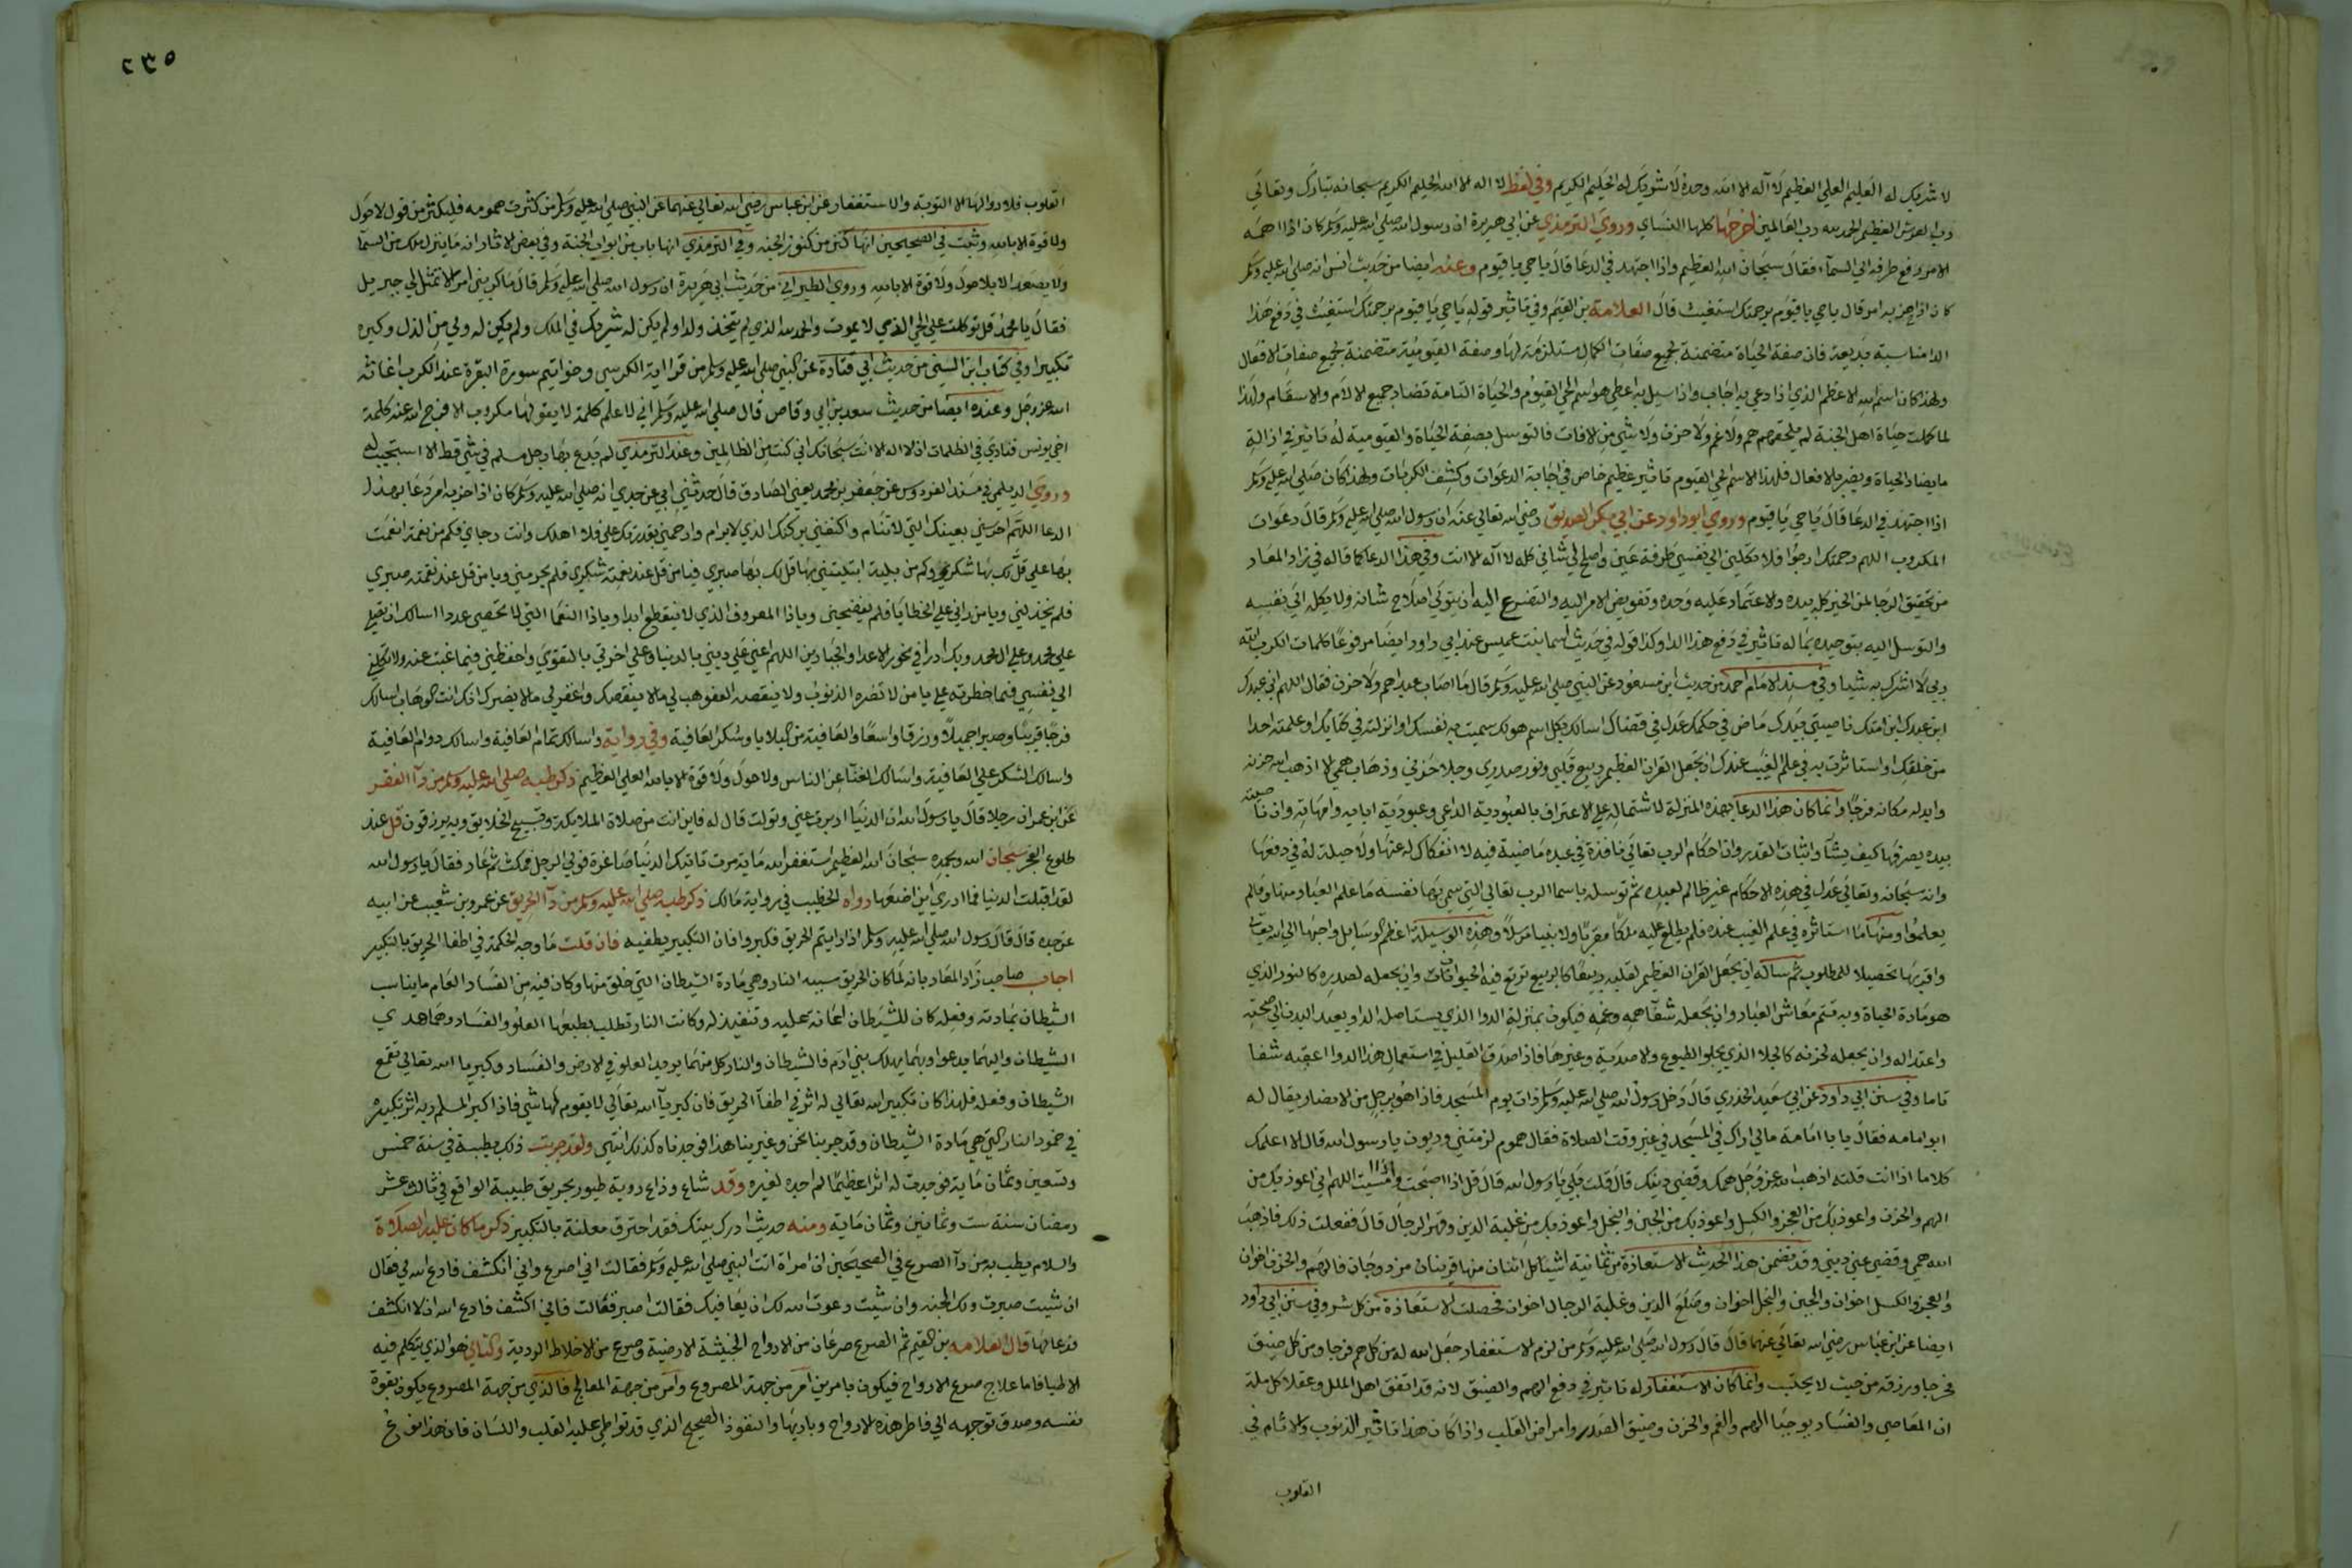 لا شريك له العليم العلي العظيم لا اله الا الله وحده لا شريك له الحليم الكريم وفي لفظ لا اله الا الله الحليم الكريم سبحانه تبارك وتعالي
رب العرش العظيم الحمد لله رب العالمين اخرجها كلها النساي وروي الترمذي عن ابي هريرة ان رسول الله صلي الله عليه وسلم كان اذا اهمه
الامر رفع طرفه الي السمآء فقال سبحان الله العظيم واذا اجتهد في الدعا قال يا حي يا قيوم وعنده ايضا من حديث انس انه صلي الله عليه وسلم
كان اذا حزبه امر قال يا حي يا قيوم برحمتك استغيث قال العلامة بن القيم وفي تاثير قوله يا حي يا قيوم برحمتك استغيث في دفع هذا
الدا مناسبة بديعة فان صفة الحياة متضمنة لجميع صفات الكمال مستلزمة لها وصفة القيومية متضمنة لجميع صفات الافعال
ولهذا كان اسم الله الاعظم الذي اذا دعي به اجاب واذا سيل به اعطي هو اسم الحي القيوم والحياة التامة تضاد جميع الالام والاسقام ولهذا
لما كملت حياة اهل الجنة لم يلحقهم هم ولا غم ولا حزن ولا شي من الافات فالتوسل بصفة الحياة والقيومية له تاثير في ازالة
ما يضاد الحياة ويضر بالافعال فلهذا الاسم الحي القيوم تاثير عظيم خاص في اجابة الدعوات وكشف الكربات ولهذا كان صلي الله عليه وسلم
اذا اجتهد في الدعا قال يا حي يا قيوم وروي ابو داود عن ابي بكر الصديق رضي الله تعالي عنه ان رسول الله صلي الله عليه وسلم قال دعوات
المكروب اللهم رحمتك ارجوا فلا تكلني الي نفسي طرفة عين واصلح لي شاني كله لا اله الا انت وفي هذا الدعا كما قاله في زاد المعاد
من تحقيق الرجا لمن الخير كله بيده والاعتماد عليه وحده وتفويض الامر اليه والتضرع اليه ان يتولي اصلاح شانه ولا يكله الي نفسه
والتوسل اليه بتوحيده مما له تاثير في دفع هذا الدا وكذا قوله في حديث اسما بنت عميس عند ابي داود ايضا مرفوعًا كلمات الكرب الله
ربي لا اشرك به شيا وفي مسند الامام احمد من حديث ابن مسعود عن النبي صلي الله عليه وسلم قال ما اصاب عبدا هم ولا حزن فقال اللهم اني عبدك
ابن عبدك ابن امتك ناصيتي بيدك ماض في حكمك عدل في قضاك اسالك بكل اسم هو لك سميت به نفسك او انزلته في كتابك او علمته احدا
من خلقك او استاثرت به في علم الغيب عندك ان تجعل القران العظيم ربيع قلبي ونور صدري وجلا حزني وذهاب همي الا اذهب الله حزنه
وابدله مكانه فرحًا وانما كان هذا الدعا بهذه المنزلة لاشتماله علي الاعتراف بالعبودية الداعي وعبودية ابايه وامهاته وان ناصيته
بيده يصرفها كيف يشآ واثبات القدر وان احكام الرب تعالي نافذة في عبده ماضية فيه لا انفكاك له عنها ولا حيلة له في دفعها
وانه سبحانه وتعالي عدل في هذه الاحكام غير ظالم لعبده ثم توسله باسما الرب تعالي التي سمي بها نفسه ما علم العباد منها وما لم
يعلموا ومنها ما استاثره في علم الغيب عنده فلم يطلع عليه ملكا مقربًا ولا نبيا مرسلاً وهذه الوسيلة اعظم الوسايل واحبها الي الله تعالي
واقربها تحصيلا للمطلوب ثم ساله ان يجعل القران العظيم لقلبه ربيعًا كالربيع ترتع فيه الحيوانات وان يجعله لصدره كالنور الذي
هو مادة الحياة وبه قتم معاش العباد وان يجعله شفآ همه وغمه فيكون بمنزلة الدوا الذي يستاصل الدا ويعيد البدن الي صحته
واعتداله وان يجعله لحزنه كالجلا الذي يجلو الطبوع والاصدية وغيرها فاذا صدق القليل في استعمال هذا الدوا اعقبه شفا
تاما وفي سنن ابي داود عن ابي سعيد الخدري قال دخل رسول الله صلي الله عليه وسلم ذات يوم المسجد فاذا هو برجل من الانصار يقال له
ابو امامه فقال يا با امامة مالي اراك في المسجد في غير وقت الصلاة فقال هموم لزمتني وديون يا رسول الله قال الا اعلمك
كلاما اذا انت قلته اذهب الله عز وجل همك وقضي دينك قال قلت بلي يا رسول الله قال قل اذا اصبحت واذا امسيت اللهم اني اعوذ بك من
الهم والحزن واعوذ بك من العجز والكسل واعوذ بك من الجبن والبخل واعوذ بك من غلبة الدين وقهر الرجال قال ففعلت ذلك فاذهب
الله همي وقضي عني ديني وقد تضمن هذا الحديث الاستعاذة من ثمانية اشيا كل اثنان منها قرينان مزدوجان فالهم والحزن اخوان
والعجز والكسل اخوان والجبن والبخل اخوان وضلع الدين وغلبة الرجال اخوان فحصلت الاستعاذة من كل شر وفي سنن ابي داود
ايضا عن ابن عباس رضي الله تعالي عنهما قال قال رسول الله صلي الله عليه وسلم من لزم الاستغفار جعل الله له من كل هم فرجا ومن كل ضيق
مخرجا ورزقه من حيث لا يحتسب وانما كان الاستغفار له تاثير في دفع الهم والضيق لانه قد اتفق اهل الملل وعقلا كل ملة
ان المعاصي والفساد يوجبا الهم والغم والحزن وضيق الصدر وامراض القلب واذا كان هذا تاثير الذنوب والاثام في
القلوب
٢٣٥
القلوب فلا دوا لها الا التوبة والاستغفار عن ابن عباس رضي الله تعالي عنهما عن النبي صلي الله عليه وسلم من كثرت همومه فليكثر من قول لا حول
ولا قوة الا بالله وثبت في الصحيحين انها كنز من كنوز الجنه وفي الترمذي انها باب من ابواب الجنة وفي بعض الاثار انه ما ينزل ملك من السمآ
ولا يصعد الا بلا حول ولا قوة الا بالله وروي الطبراني من حديث ابي هريرة ان رسول الله صلي الله عليه وسلم قال ما كربني امر الا تمثل لي جبريل
فقال يا محمد قل توكلت علي الحي الذي لا يموت والحمد لله الذي لم يتخذ ولدا ولم يكن له شريك في الملك ولم يكن له ولي من الذل وكبره
تكبيرا وفي كتاب ابن السني من حديث ابي قتادة عن النبي صلي الله عليه وسلم من قرا اية الكرسي وخواتيم سورة البقرة عند الكرب اغاثه
الله عز وجل وعنده ايضا من حديث سعد بن ابي وقاص قال صلي الله عليه وسلم اني لا علم كلمة لا يقولها مكروب الا فرج الله عنه كلمة
اخي يونس فنادي في الظلمات ان لا اله الا انت سبحانك اني كنت من الظالمين وعند الترمذي لم يدع بها رجل مسلم في شي قط الا استجيب له
وروي الديلمي في مسند الفردوس عن جعفر بن محمد يعني الصادق قال حدثني ابي عن جدي انه صلي الله عليه وسلم كان اذا حزبه امر دعا بهذا
الدعا اللهم احرسني بعينك التي لا تنام واكنفني بركنك الذي لا يرام وارحمني بقدرتك علي فلا اهلك وانت رجاي فكم من نعمة انعمت
بها علي قل لك بها شكري وكم من بلية ابتليتني بها قل لك بها صبري فيا من قل عند نعمته شكري فلم يحرمني ويا من قل عند نقمته صبري
فلم يخذلني ويا من راني علي الخطايا فلم يفضحني ويا ذا المعروف الذي لا ينقطع ابدا ويا ذا النعما التي لا تحصي عددا اسالك ان تصلي
علي محمد وعلي ال محمد وبك ادرا في نحور الاعدا والجبارين اللهم اعني علي ديني بالدنيا وعلي اخرتي بالتقوي واحفظني فيما غبت عنه ولا تكلني
الي نفسي فيما خطرته علي يا من لا تضره الذنوب ولا ينقصه العفو هب لي ما لا ينقصك واغفر لي ما لا يضرك انك انت الوهاب اسالك
فرجًا قريبًا وصبرا جميلاً ورزقا واسعًا والعافية من البلايا وشكر العافية وفي رواية واسالك تمام العافية واسالك دوام العافية
واسالك الشكر علي العافية واسالك الغنآ عن الناس ولا حول ولا قوة الا بالله العلي العظيم ذكر طبه صلي الله عليه وسلم من دآ الفقر
عن ابن عمر ان رجلا قال يا رسول الله ان الدنيا ادبرت عني وتولت قال له فاين انت من صلاة الملائكة وتسبيح الخلايق وبه يرزقون قل عند
طلوع الفجر سبحان الله وبحمده سبحان الله العظيم استغفر الله ماية مرة تاتيك الدنيا صاغرة فولي الرجل فمكث ثم عاد فقال يا رسول الله
لقد اقبلت الدنيا فما ادري اين اضعها رواه الخطيب في رواية مالك ذكر طبه صلي الله عليه وسلم من دآ الحريق عن عمرو بن شعيب عن ابيه
عن جده قال قال رسول الله صلي الله عليه وسلم اذا رايتم الحريق فكبروا فان التكبير يطفيه فان قلت ما وجه الحكمة في اطفا الحريق بالتكبير
اجاب صاحب زاد المعاد بانه لما كان الحريق سببه النار وهي مادة الشيطان التي خلق منها وكان فيه من الفساد العام ما يناسب
الشيطان بمادته وفعله كان للشيطان اعانة عليه وتنفيذ له وكانت النار تطلب بطبعها العلو والفساد وهما هدي
الشيطان واليهما يدعوا وبهما يهلك بني ادم فالشيطان والنار كل منهما يريد العلو في الارض والفساد وكبريا الله تعالي تقمع
الشيطان وفعله فلهذا كان تكبير الله تعالي له اثر في اطفآ الحريق فان كبريآ الله تعالي لا يقوم لها شي فاذا كبر المسلم ربه اثر تكبيره
في خمود النار التي هي مادة الشيطان وقد جربنا نحن وغيرنا هذا فوجدناه كذلك انتهي ولقد جربت ذلك بطيبة في سنة خمس
وتسعين وثمان ماية فوجدت له اثرا عظيمًا لم اجده لغيره وقد شاع وذاع روية طيور بحريق طيبة الواقع في ثالث عشر
رمضان سنة ست وثمانين وثمان ماية ومنه حديث ادرك بيتك فقد احترق معلنة بالتكبير ذكر ما كان عليه الصلاة
والسلام يطب به من دآ الصرع في الصحيحين ان امراة اتت النبي صلي الله عليه وسلم فقالت اني اصرع واني انكشف فادع الله لي فقال
ان شيت صبرت ولك الجنة وان شيت دعوت الله لك ان يعافيك فقالت اصبر فقالت فاني اكشف فادع الله ان لا انكشف
فدعا لها قال العلامه بن القيم ثم الصرع صرعان من الارواح الخبيثة الارضية وصرع من الاخلاط الردية والثاني هو الذي يتكلم فيه
الاطبا فاما علاج صرع الارواح فيكون بامرين امر من جهة المصروع وامر من جهة المعالج فالذي من جهة المصروع يكون بقوة
نفسه وصدق توجهه الي فاطر هذه الارواح وباريها والتعوذ الصحيح الذي قد تواطي عليه القلب واللسان فان هذا نوع